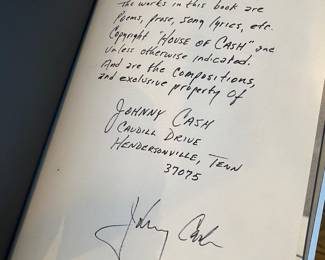 The works in this book are
Poems, prose, song lyrics, etc.
Copyright "HOUSE OF CASH" and
unless otherwise indicated.
And are the compositions,
and exclusive property of
JOHNNY CASH
CAUDILL DRIVE
HENDERSONVILLE, TENN
37075
Johnny Cash